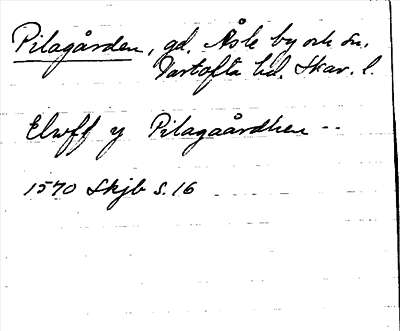 Pilagården, gd. Åsle by och sn.
Vartofta hd. Skar. l.
Elwff y Pilagaårdhen --
1570 Skjb s. 16